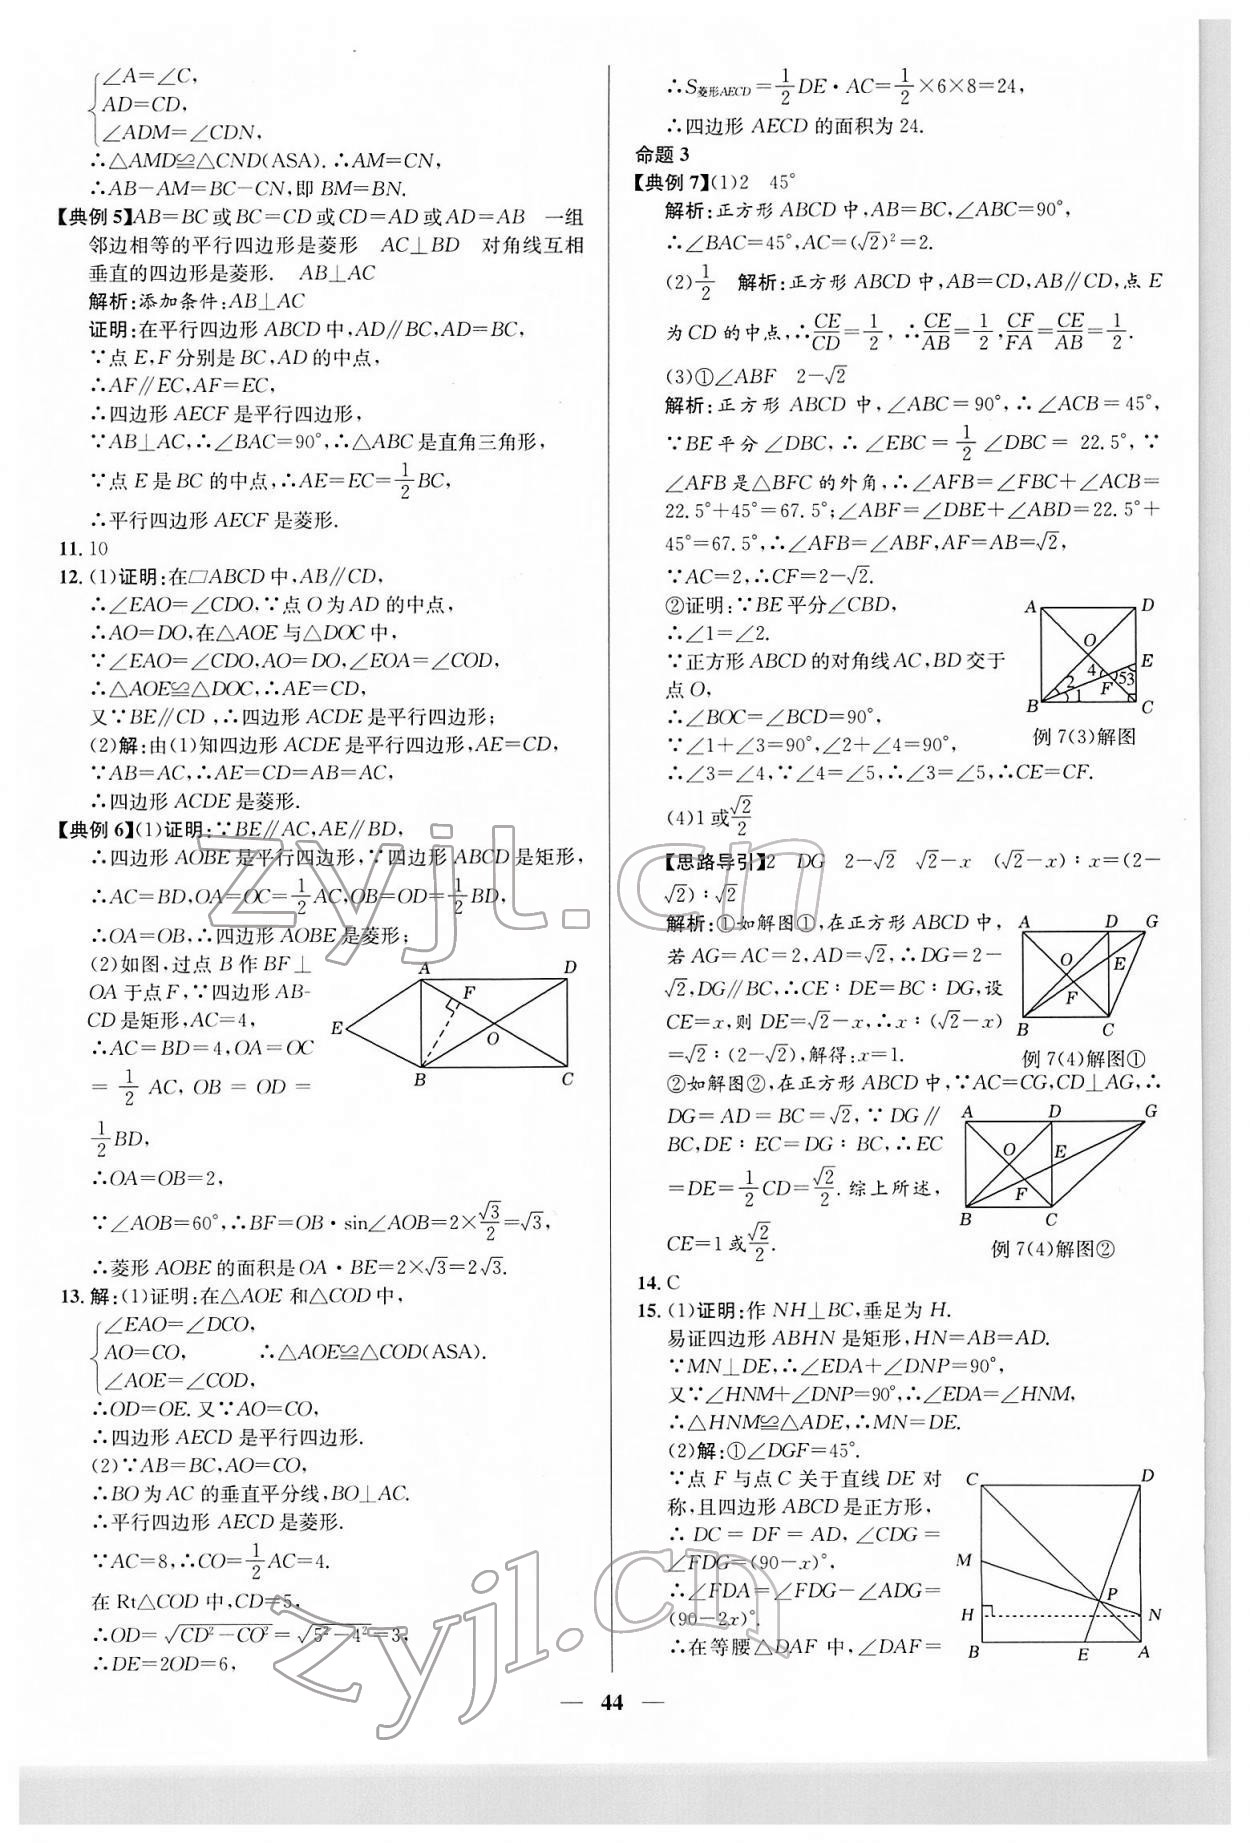 ∠A=∠C,
AD=CD,
∠ADM=∠CDN,
∴△AMD≌△CND(ASA).∴AM=CN,
∴AB−AM=BC−CN,即 BM=BN.
【典例 5】AB=BC 或 BC=CD 或 CD=AD 或 AD=AB 一组
邻边相等的平行四边形是菱形 AC⊥BD 对角线互相
垂直的四边形是菱形. AB⊥AC
解析:添加条件:AB⊥AC
证明:在平行四边形 ABCD 中,AD∥BC,AD=BC,
∵点 E,F 分别是 BC,AD 的中点,
∴AF∥EC,AF=EC,
∴四边形 AECF 是平行四边形,
∵AB⊥AC,∴∠BAC=90°,∴△ABC 是直角三角形,
∵点 E 是 BC 的中点,∴AE=EC=1/2BC,
∴平行四边形 AECF 是菱形.
11. 10
12. (1)证明:在▱ABCD 中,AB∥CD,
∴∠EAO=∠CDO,∵点 O 为 AD 的中点,
∴AO=DO,在△AOE 与△DOC 中,
∵∠EAO=∠CDO,AO=DO,∠EOA=∠COD,
∴△AOE≌△DOC,∴AE=CD,
又∵BE∥CD,∴四边形 ACDE 是平行四边形;
(2)解:由(1)知四边形 ACDE 是平行四边形,AE=CD,
∵AB=AC,∴AE=CD=AB=AC,
∴四边形 ACDE 是菱形.
【典例 6】(1)证明:∵BE∥AC,AE∥BD,
∴四边形 AOBE 是平行四边形,∵四边形 ABCD 是矩形,
∴AC=BD,OA=OC=1/2AC,OB=OD=1/2BD,
∴OA=OB,∴四边形 AOBE 是菱形;
(2)如图,过点 B 作 BF⊥
OA 于点 F,∵四边形 AB-
CD 是矩形,AC=4,
∴AC=BD=4,OA=OC
=1/2 AC, OB = OD =
1/2BD,
A D F E O B C
∴OA=OB=2,
∵∠AOB=60°,∴BF=OB·sin∠AOB=2×√3/2=√3,
∴菱形 AOBE 的面积是 OA·BE=2×√3=2√3.
13. 解:(1)证明:在△AOE 和△COD 中,
∠EAO=∠DCO,
AO=CO, ∴△AOE≌△COD(ASA).
∠AOE=∠COD,
∴OD=OE.又∵AO=CO,
∴四边形 AECD 是平行四边形.
(2)∵AB=BC,AO=CO,
∴BO 为 AC 的垂直平分线,BO⊥AC.
∴平行四边形 AECD 是菱形.
∵AC=8,∴CO=1/2AC=4.
在 Rt△COD 中,CD=5,
∴OD=√(CD²−CO²)=√(5²−4²)=3,
∴DE=2OD=6,
∴S菱形AECD=1/2DE·AC=1/2×6×8=24,
∴四边形 AECD 的面积为 24.
命题 3
【典例 7】(1)2 45°
解析:正方形 ABCD 中,AB=BC,∠ABC=90°,
∴∠BAC=45°,AC=(√2)²=2.
(2)1/2 解析:正方形 ABCD 中,AB=CD,AB∥CD,点 E
为 CD 的中点,∴CE/CD=1/2, ∴CE/AB=1/2,CF/FA=CE/AB=1/2.
(3)①∠ABF 2−√2
解析:正方形 ABCD 中,∠ABC=90°,∴∠ACB=45°,
∵BE 平分∠DBC,∴∠EBC=1/2∠DBC=22.5°,∵
∠AFB 是△BFC 的外角,∴∠AFB=∠FBC+∠ACB=
22.5°+45°=67.5°;∠ABF=∠DBE+∠ABD=22.5°+
45°=67.5°,∴∠AFB=∠ABF,AF=AB=√2,
∵AC=2,∴CF=2−√2.
②证明:∵BE 平分∠CBD,
∴∠1=∠2.
∵正方形 ABCD 的对角线 AC,BD 交于
点 O,
∴∠BOC=∠BCD=90°,
∵∠1+∠3=90°,∠2+∠4=90°,
A D O E 4 2 5 3 1 F B C
例 7(3)解图
∴∠3=∠4,∵∠4=∠5,∴∠3=∠5,∴CE=CF.
(4)1 或√2/2
【思路导引】2 DG 2−√2 √2−x (√2−x)∶x=(2−
√2)∶√2
解析:①如解图①,在正方形 ABCD 中,
若 AG=AC=2,AD=√2,∴DG=2−
√2,DG∥BC,∴CE∶DE=BC∶DG,设
CE=x,则 DE=√2−x,∴x∶(√2−x)
=√2∶(2−√2),解得:x=1.
A D G O E F B C
例 7(4)解图①
②如解图②,在正方形 ABCD 中,∵AC=CG,CD⊥AG,∴
DG=AD=BC=√2,∵DG∥
BC,DE∶EC=DG∶BC,∴EC
=DE=1/2CD=√2/2.综上所述,
CE=1 或√2/2.
A D G O E F B C
例 7(4)解图②
14. C
15. (1)证明:作 NH⊥BC,垂足为 H.
易证四边形 ABHN 是矩形,HN=AB=AD.
∵MN⊥DE,∴∠EDA+∠DNP=90°,
又∵∠HNM+∠DNP=90°,∴∠EDA=∠HNM,
∴△HNM≌△ADE,∴MN=DE.
(2)解:①∠DGF=45°.
∵点 F 与点 C 关于直线 DE 对
称,且四边形 ABCD 是正方形,
∴ DC = DF = AD, ∠CDG =
∠FDG=(90−x)°,
∴∠FDA=∠FDG−∠ADG=
(90−2x)°.
∴在等腰△DAF 中,∠DAF=
C D M P H N B E A
— 44 —
zyjl.cn
zyjl.cn